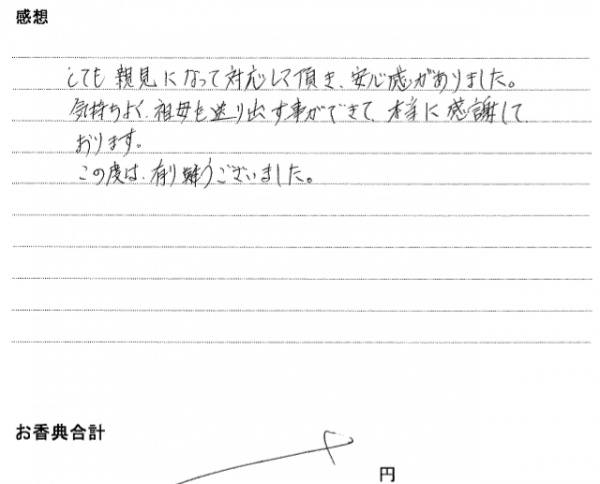 感想
とても親見になって対応して頂き、安心感がありました。
気持ちよく、祖母を送り出す事ができて、本当に感謝して
おります。
この度は、有り難うございました。
お香典合計
円